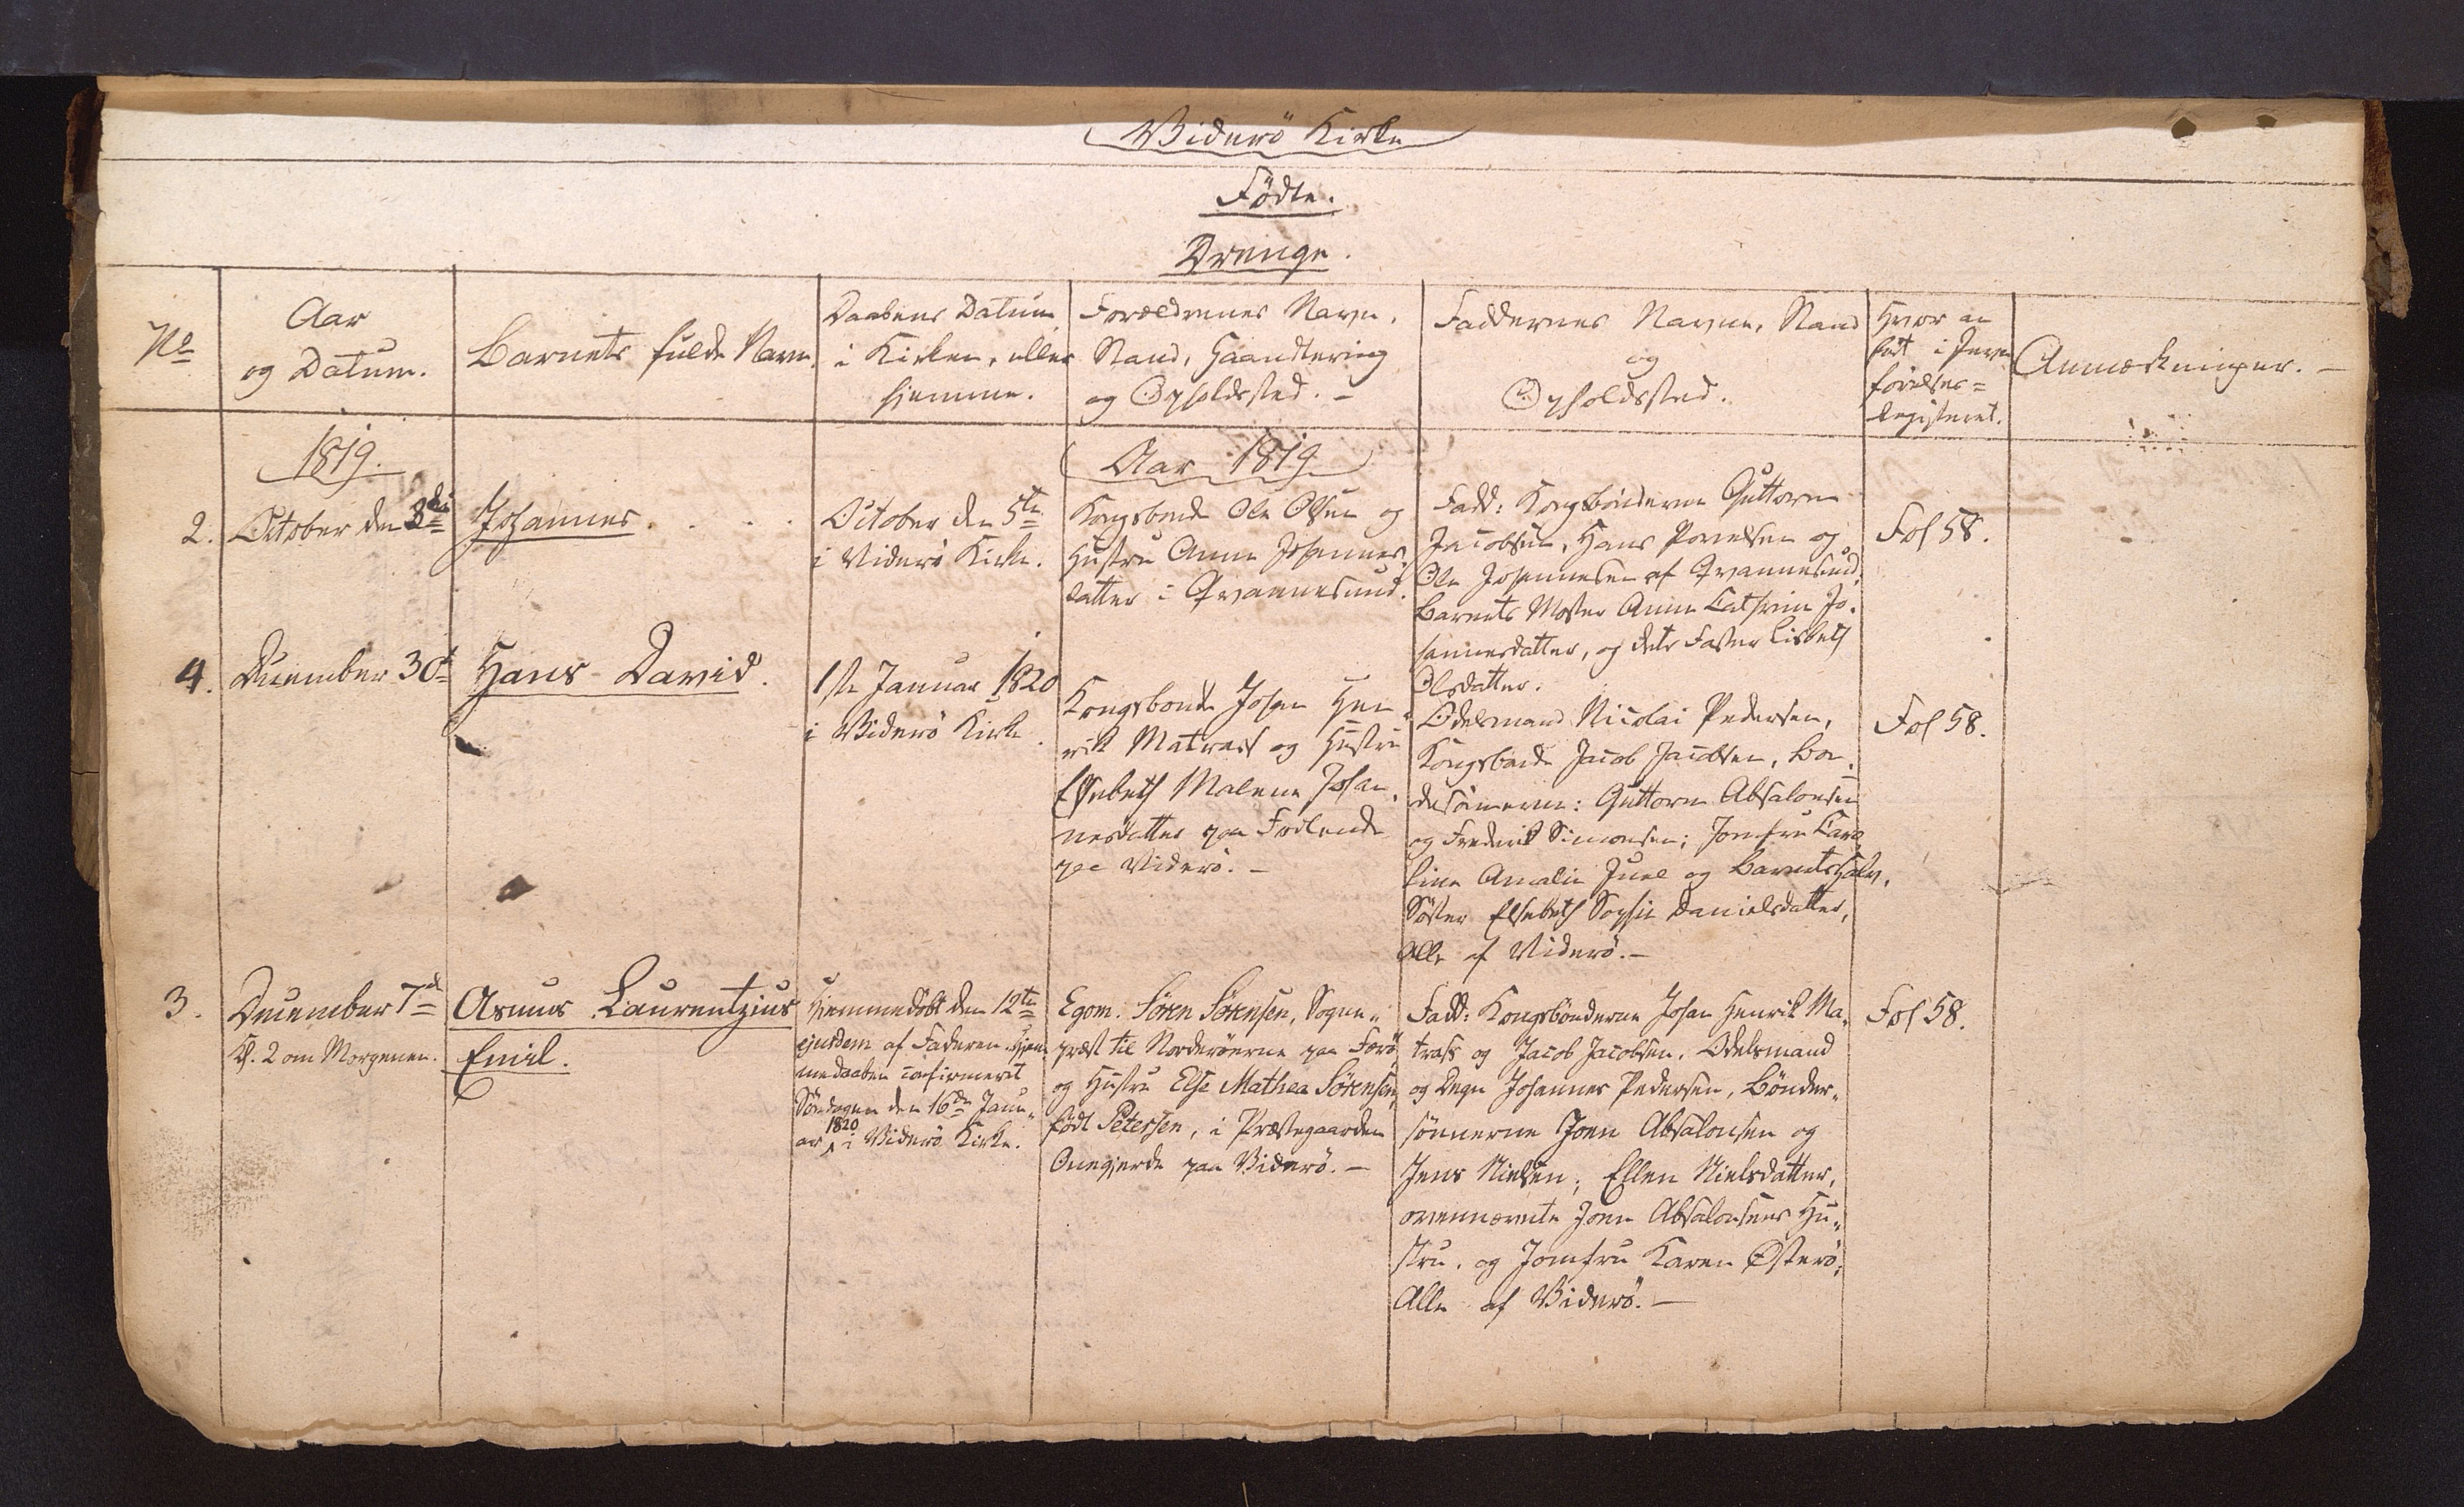 Viderö Kirke
Födte.
Drenge.
No
Aar
og Datum.
Barnets fulde Navn.
Daabens Datum
i Kirken, eller
hjemme.
Forældrenes Navn,
Stand, Haandtering
og Opholdssted. -
Faddernes Navne, Stand
og
Opholdssted.
Hvor an
fört i Jevn
förelses=
Registeret.
Anmærkninger. -
1819.
Aar 1819
2.
October den 3die
Johannes. . . .
October den 5te
i Viderö Kirke.
Kongsbonde Ole Olsen og
Hustru Anne Johannes,
datter i Qvannesund.
Fadd: Kongsbönderne Guttorm
Jacobsen, Hans Poulsen og
Ole Johannesen af Qvannesund,
Barnets Moster Anne Cathrine Jo.
hannesdatter, og dets Faster Lisbeth
Olsdatter.
Fol 58.
4.
December 30t
Hans David.
1ste Januar 1820
i Viderö Kirke.
Kongsbonde Johan Hen„
rik Matrass og Hustru
Elsebeth Malene Johan,
nesdatter paa
paa Viderö. -
Odelsmand Nicolai Pedersen,
Kongsbonde Jacob Jacobsen, Bon,
desönnerne: Guttorm Absalonsen
og Frederik Simonsen; Jomfru Caro,
line Amalie Juel og Barnets Halv,
Söster Elsebeth Sophie Danielsdatter,
Alle af Viderö. -
Fol 58.
3.
December 7de
Kl. 2 om Morgenen.
Asmus Laurentzius
Emil.
Hjemmedöbt den 12te
ejusdem af Faderen. Hjem
medaaben confirmeret
Söndagen den 16de Janu„
ar 1820 i Viderö Kirke.
Egom. Sören Sörensen, Sogne„
præst til Norderöerne paa Færö
og Hustru Else Mathea Sörensen,
född Petersen, i Præstegaarden
Onegjerde paa Viderö. -
Fadd: Kongsbönderne Johan Henrik Ma,
trass og Jacob Jacobsen, Odelsmand
og Degn Johannes Pedersen, Bönder„
sönnerne Joen Absalonsen og
Jens Nielsen; Ellen Nielsdatter,
ovennævnte Joen Absalonsens Hu„
stru, og Jomfru Karen Österö,
Alle af Viderö. -
Fol 58.